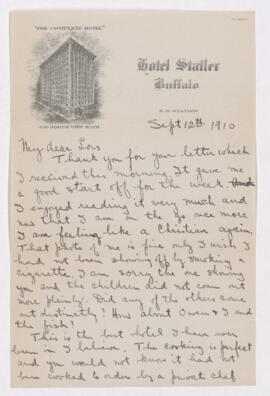 "THE COMPLETE HOTEL"
Hotel Statler
Buffalo
E. M. STATLER
Sept 12th 1910
My dear Lois
Thank you for your letter which
I received this morning. It gave me
a good start off for the week.
I enjoyed reading it very much and
now that I am on the go once more
I am feeling like a Christian again.
That photo of me is fine only I wish I
had not been showing off by smoking a
cigarette. I am sorry the one showing
you and the children did not come out
more plainly. Did any of the others come
out distinctly? How about Owen & I and
the fish?
This is the best hotel I have ever
been in I believe. The cooking is perfect
and you would not know it had not
been cooked to order by a private chef